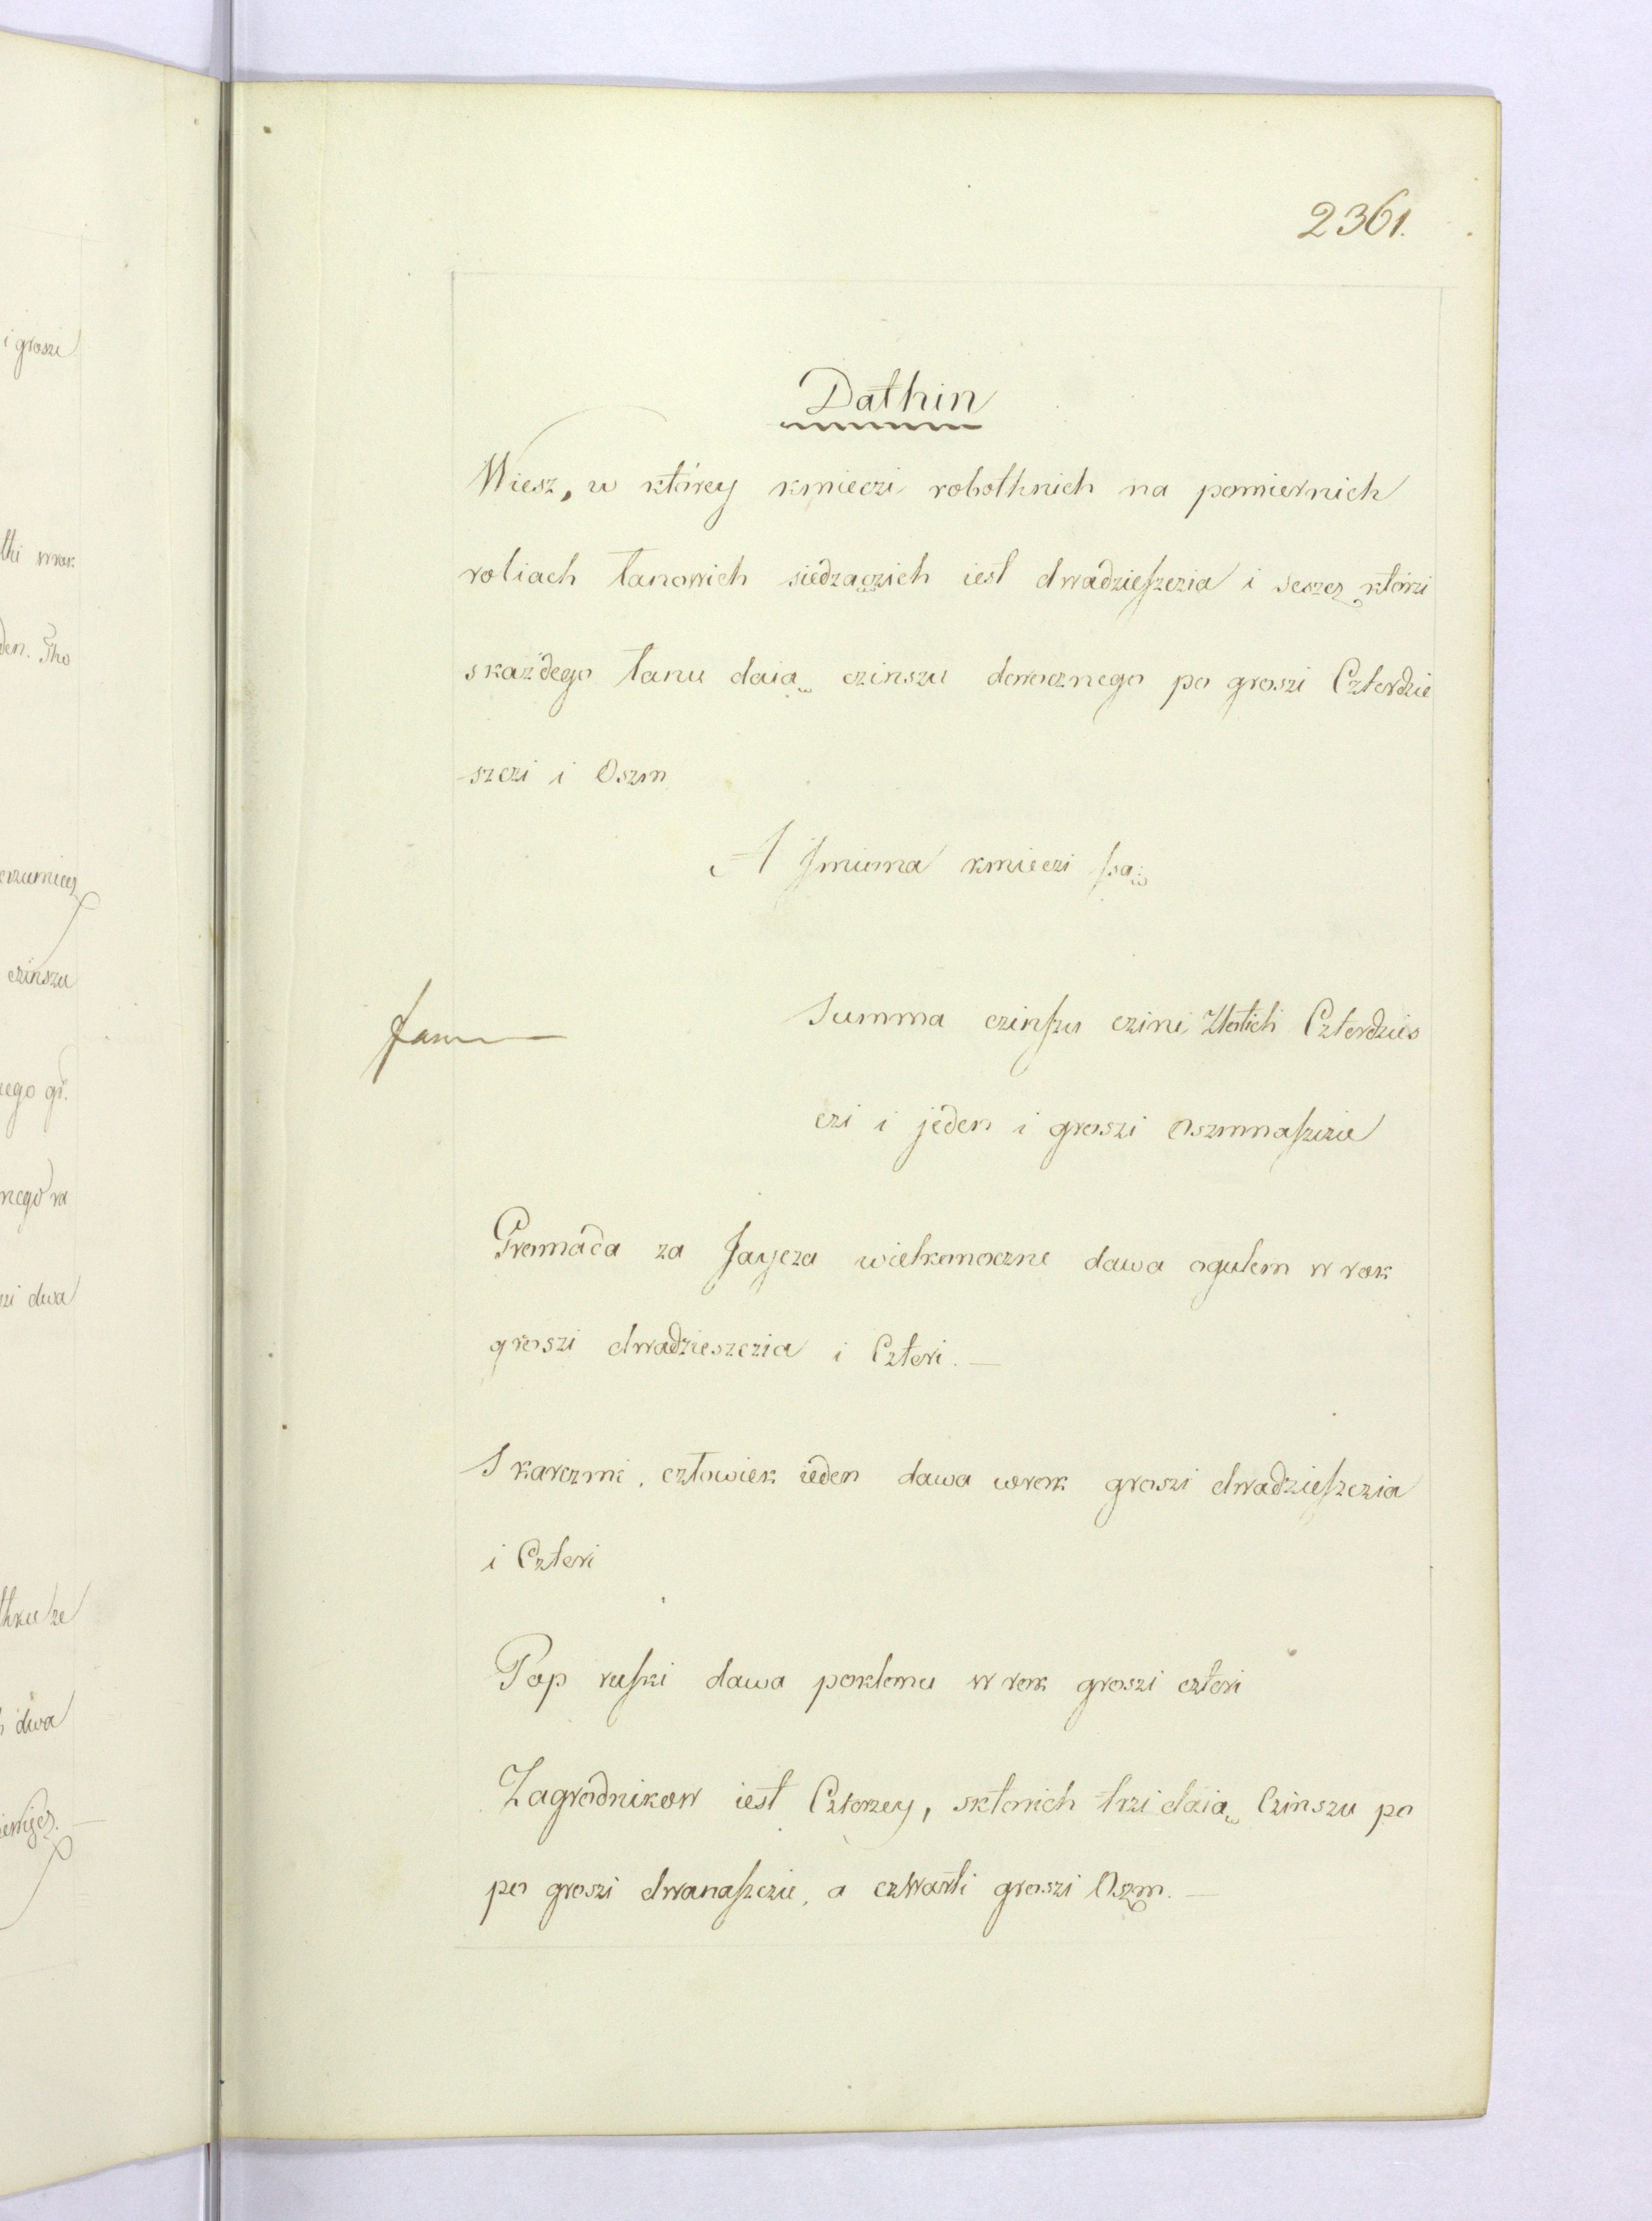 i grosze
2361.
Dathin
Wiesz, w którey kmieczi robothnich na pomiernich
roliach łanowich siedzączich iest dwadzieszczia i seszcz którzi
skażdego łanu daią czinszu dorocznego po groszi Czterdzie
szczi i Oszm
A Imiona kmieczi są
Summa czinszu czini Złotich Czterdzies
czi i jeden i groszi Oszmnaszczie
Gromada za Jaycza wielkonoczne dawa ogulem w rok
groszi dwadzieszczia i Czteri. —
S karczmi, człowiek ieden dawa wrok groszi dwadzieszczia
i Czteri
Pop ruski dawa pokłonu w rok groszi czteri
Zagrodnikow iest Czworzey, sktorich trzi daią Czinszu po
po groszi dwanaszczie, a czwarti groszi Oszm. —
czinszu
nego gr.
dwa
dwa